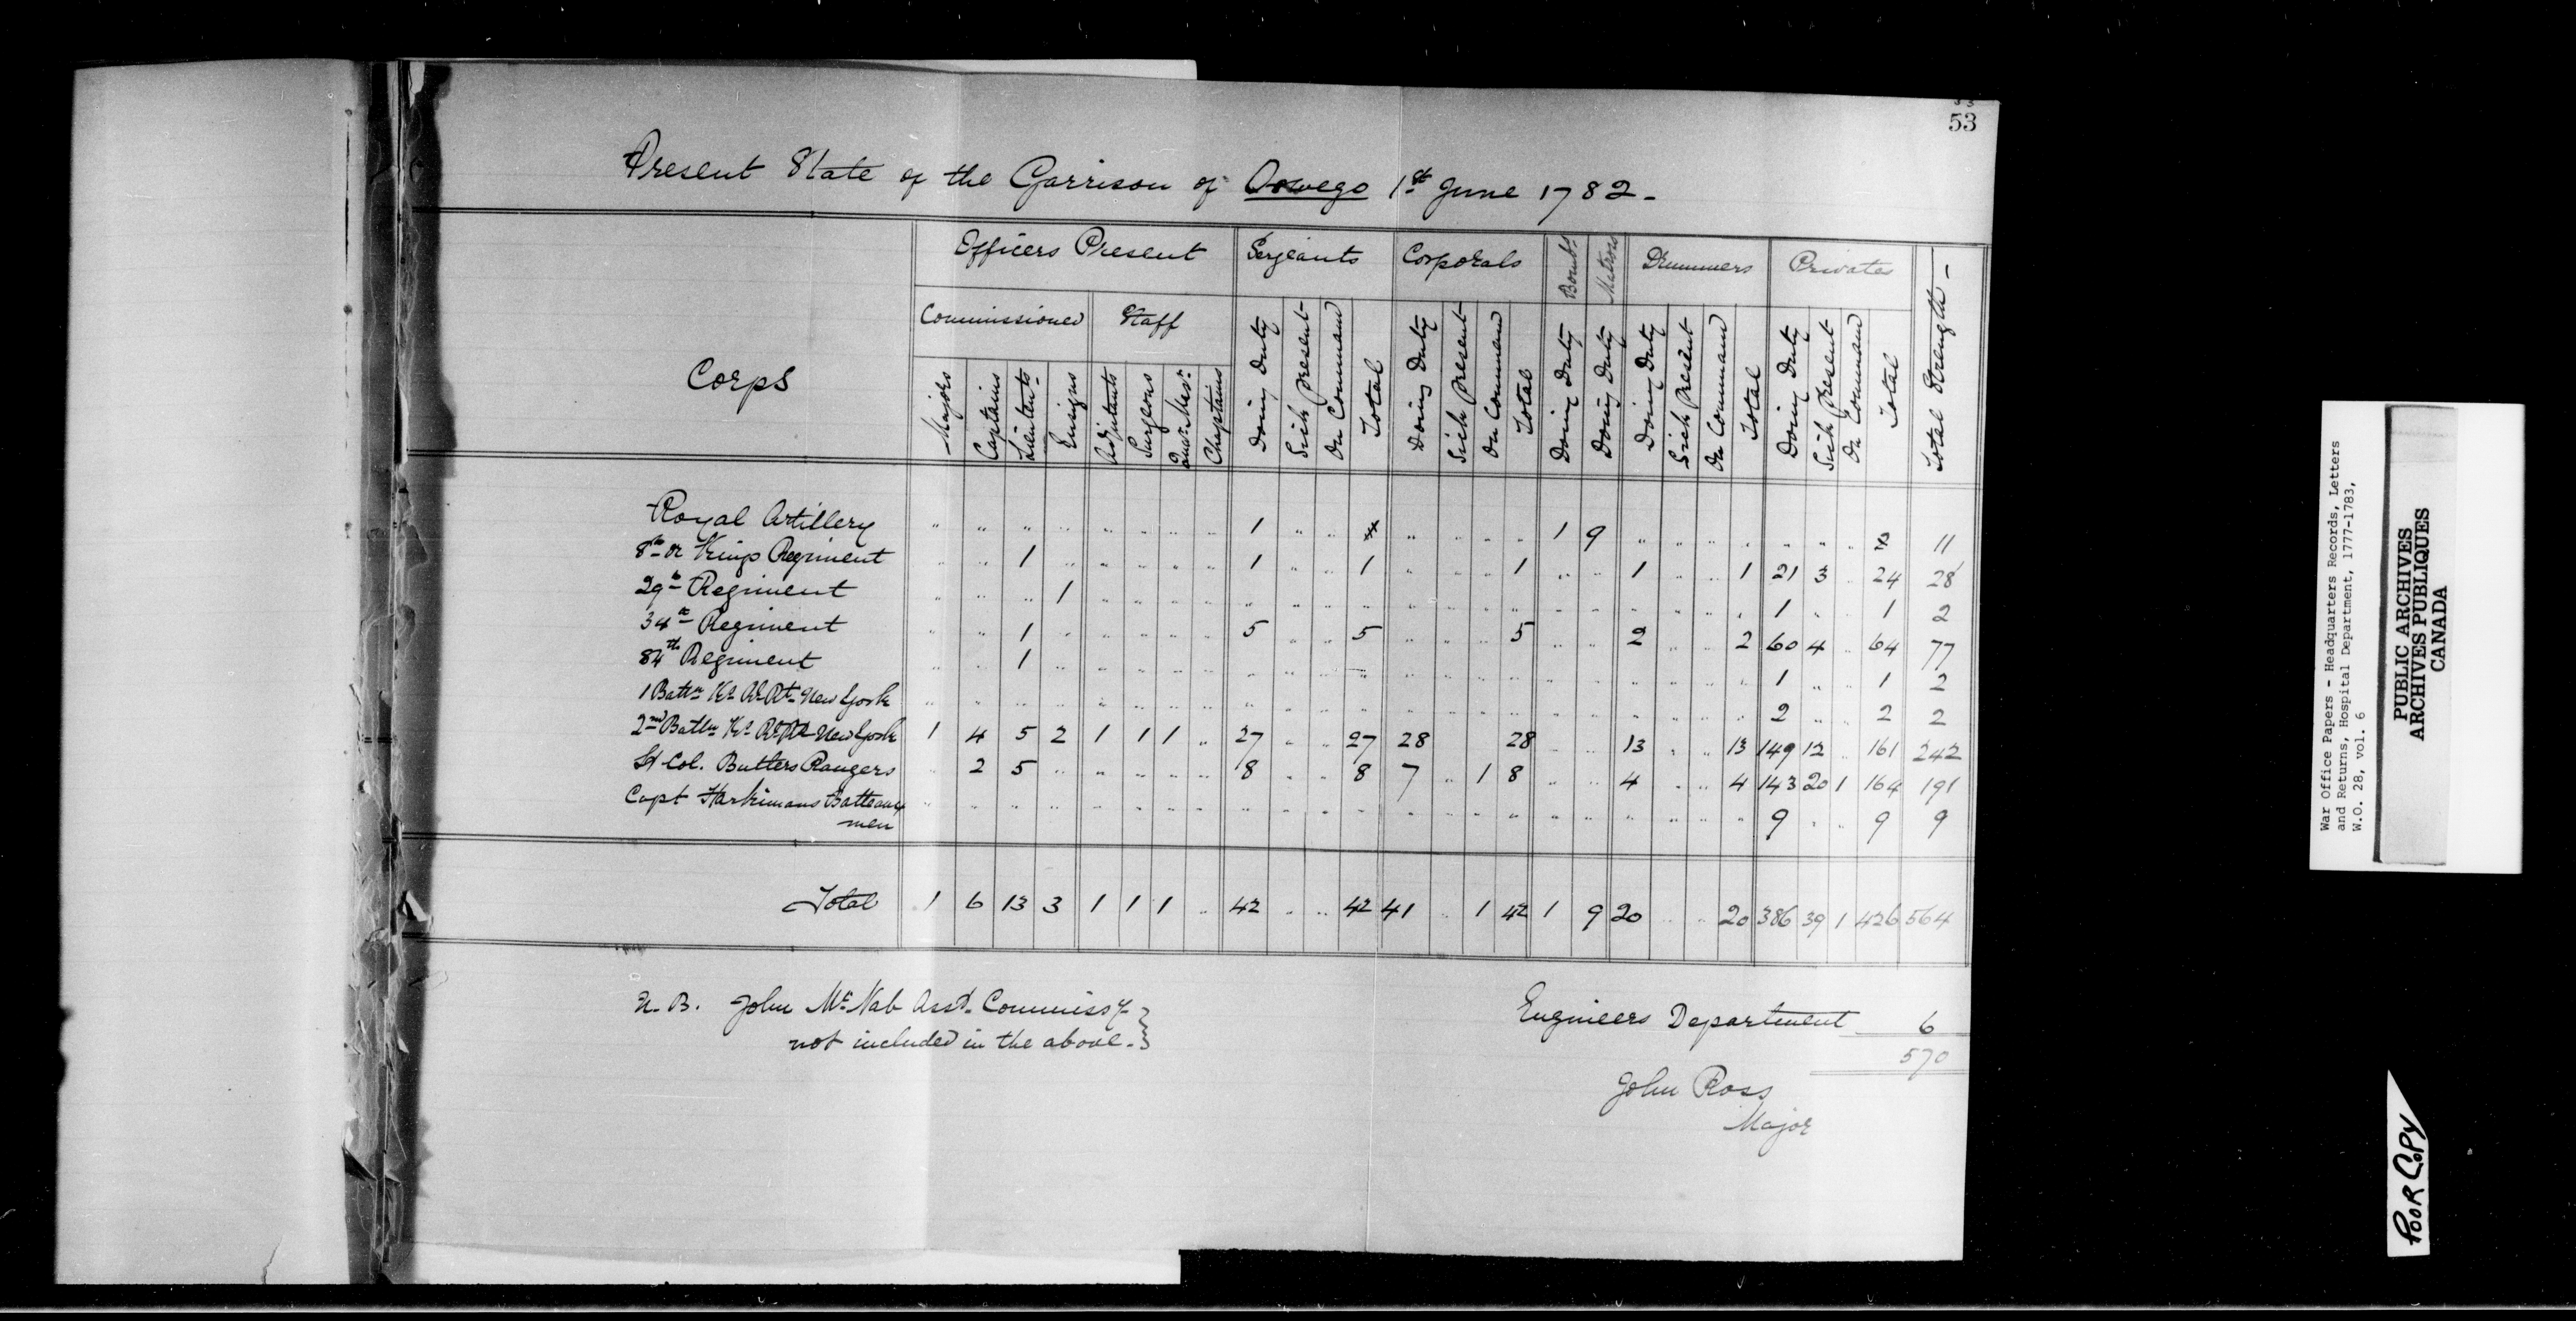 53
Present State of the Garrison of Oswego 1st June 1782 -
Corps
Officers Present
Sergeants
Corporals
Bombs
Matross
Drummers
Privates
Total Strength -
Commissioned
Staff
Majors
Captains
Lieutents
Ensigns
Adjutants
Surgeons
Quar. Masr.
Chaplains
Doing Duty
Sick present
On Command
Total
Doing Duty
Sick present
On Command
Total
Doing Duty
Doing Duty
Doing Duty
Sick present
On Command
Total
Doing Duty
Sick present
On Command
Total
Royal Artillery " " " " " " " " 1 " " " " " " 1 9 " " " " " " " 11
8th or Kings Regiment " " 1 " " " " " 1 " " 1 " " " 1 " " 1 " " 1 21 3 " 24 28
29th Regiment " " " 1 " " " " " " " " " " " " " " " " " " 1 " " 1 2
34th Regiment " " 1 " " " " " 5 " " 5 " " " 5 " " 2 " " 2 60 4 " 64 77
84th Regiment " " 1 " " " " " " " " " " " " " " " " " " " 1 " " 1 2
1 Battn Ks Rl Rt New York " " " " " " " " " " " " " " " " " " " " " " 2 " " 2 2
2nd Battn Ks Rl Rt New York 1 4 5 2 1 1 1 " 27 " " 27 28 28 " " 13 " " 13 149 12 " 161 242
Lt Col. Butlers Rangers " 2 5 " " " " " 8 " " 8 7 " 1 8 " " 4 " " 4 143 20 1 164 191
Capt Harkimans Batteaux
men " " " " " " " " " " " " " " " " " " " " " " 9 " " 9 9
Total 1 6 13 3 1 1 1 " 42 " " 42 41 " 1 42 1 9 20 " " 20 386 39 1 426 564
N. B. John Mc Nab Asst. Commissy
not included in the above. }
Engineers Department 6
570
John Ross
Major
War Office Papers - Headquarters Records, Letters
and Returns, Hospital Department, 1777-1783,
W.O. 28, vol. 6
PUBLIC ARCHIVES
ARCHIVES PUBLIQUES
CANADA
POOR COPY